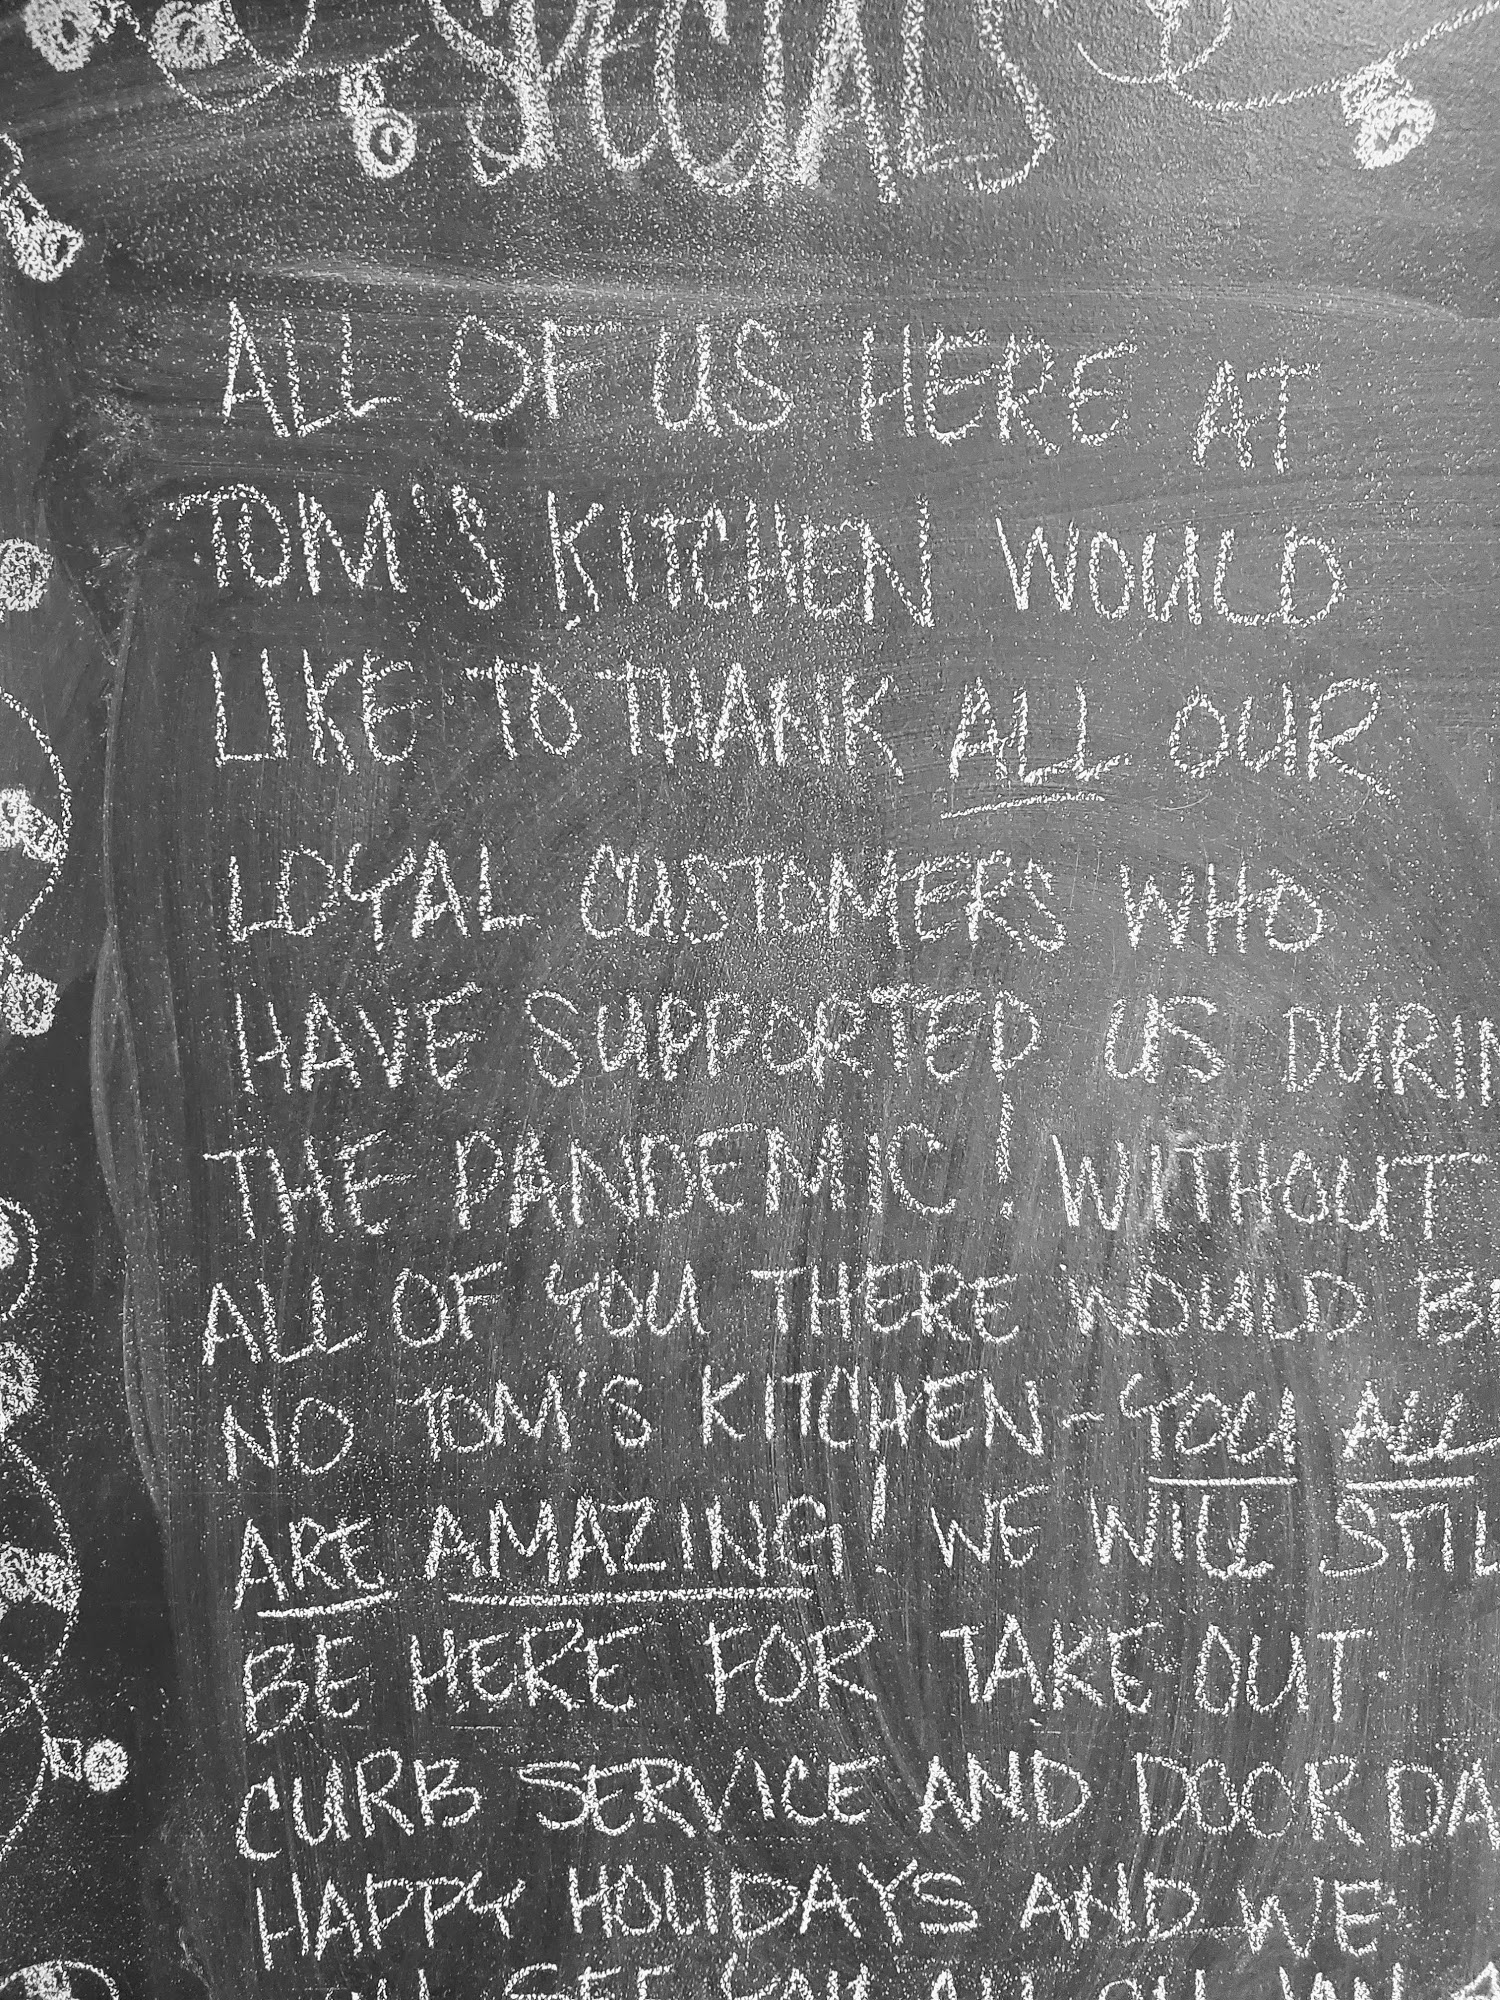 SPECIALS
ALL OF US HERE AT
TOM'S KITCHEN WOULD
LIKE TO THANK ALL OUR
LOYAL CUSTOMERS WHO
HAVE SUPPORTED US DURIN
THE PANDEMIC! WITHOUT
ALL OF YOU THERE WOULD BE
NO TOM'S KITCHEN - YOU ALL
ARE AMAZING! WE WILL STIL
BE HERE FOR TAKE-OUT.
CURB SERVICE AND DOOR DA
HAPPY HOLIDAYS AND WE
SEE YOU ALL ON JAN